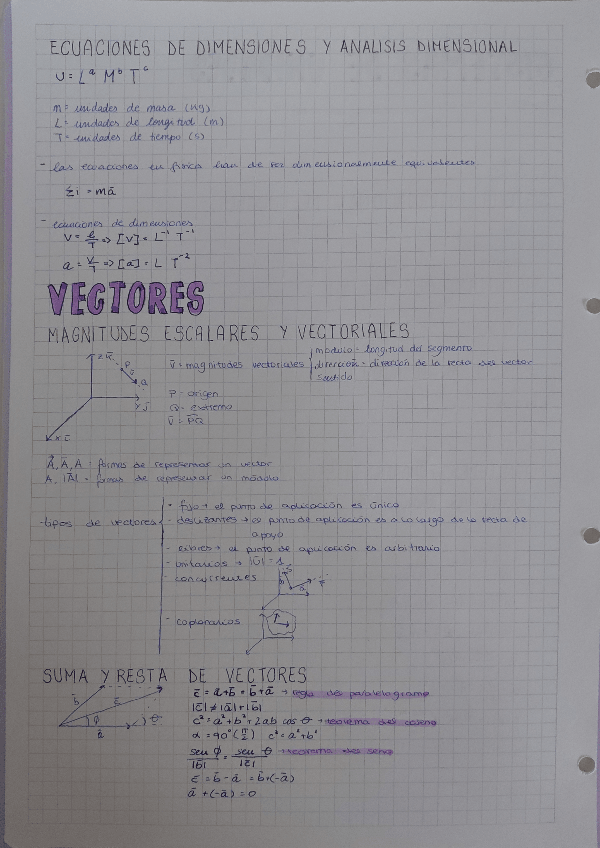 ECUACIONES DE DIMENSIONES Y ANALISIS DIMENSIONAL
U = L^a M^b T^c
m = unidades de masa (Kg)
L = unidades de longitud (m)
T = unidades de tiempo (s)
- las ecuaciones en física han de ser dimensionalmente equivalentes
Σi = mā
- ecuaciones de dimensiones
V = l/T => [V] = L^-1 T^-1
a = V/T => [a] = L T^-2
VECTORES
MAGNITUDES ESCALARES Y VECTORIALES
v̄ = magnitudes vectoriales
módulo = longitud del segmento
dirección = dirección de la recta del vector
sentido
P = origen
Q = extremo
v̄ = PQ
Á, Ā, A : formas de representar un vector
A, |Ā| = formas de representar un módulo
tipos de vectores
- fijo → el punto de aplicación es único
- deslizantes → el punto de aplicación es a lo largo de la recta de
apoyo
- libres → el punto de aplicación es arbitrario
- unitarios → |ū| = 1
- concurrentes
- coplanarios
SUMA Y RESTA DE VECTORES
c̄ = ā + b̄ = b̄ + ā → regla del paralelogramo
|c̄| ≠ |ā| + |b̄|
c² = a² + b² + 2ab cos θ → teorema del coseno
α = 90° (π/2) c² = a² + b²
sen ϕ/|b̄| = sen θ/|c̄| → teorema del seno
c̄ = b̄ - ā = b̄ + (-ā)
ā + (-ā) = 0